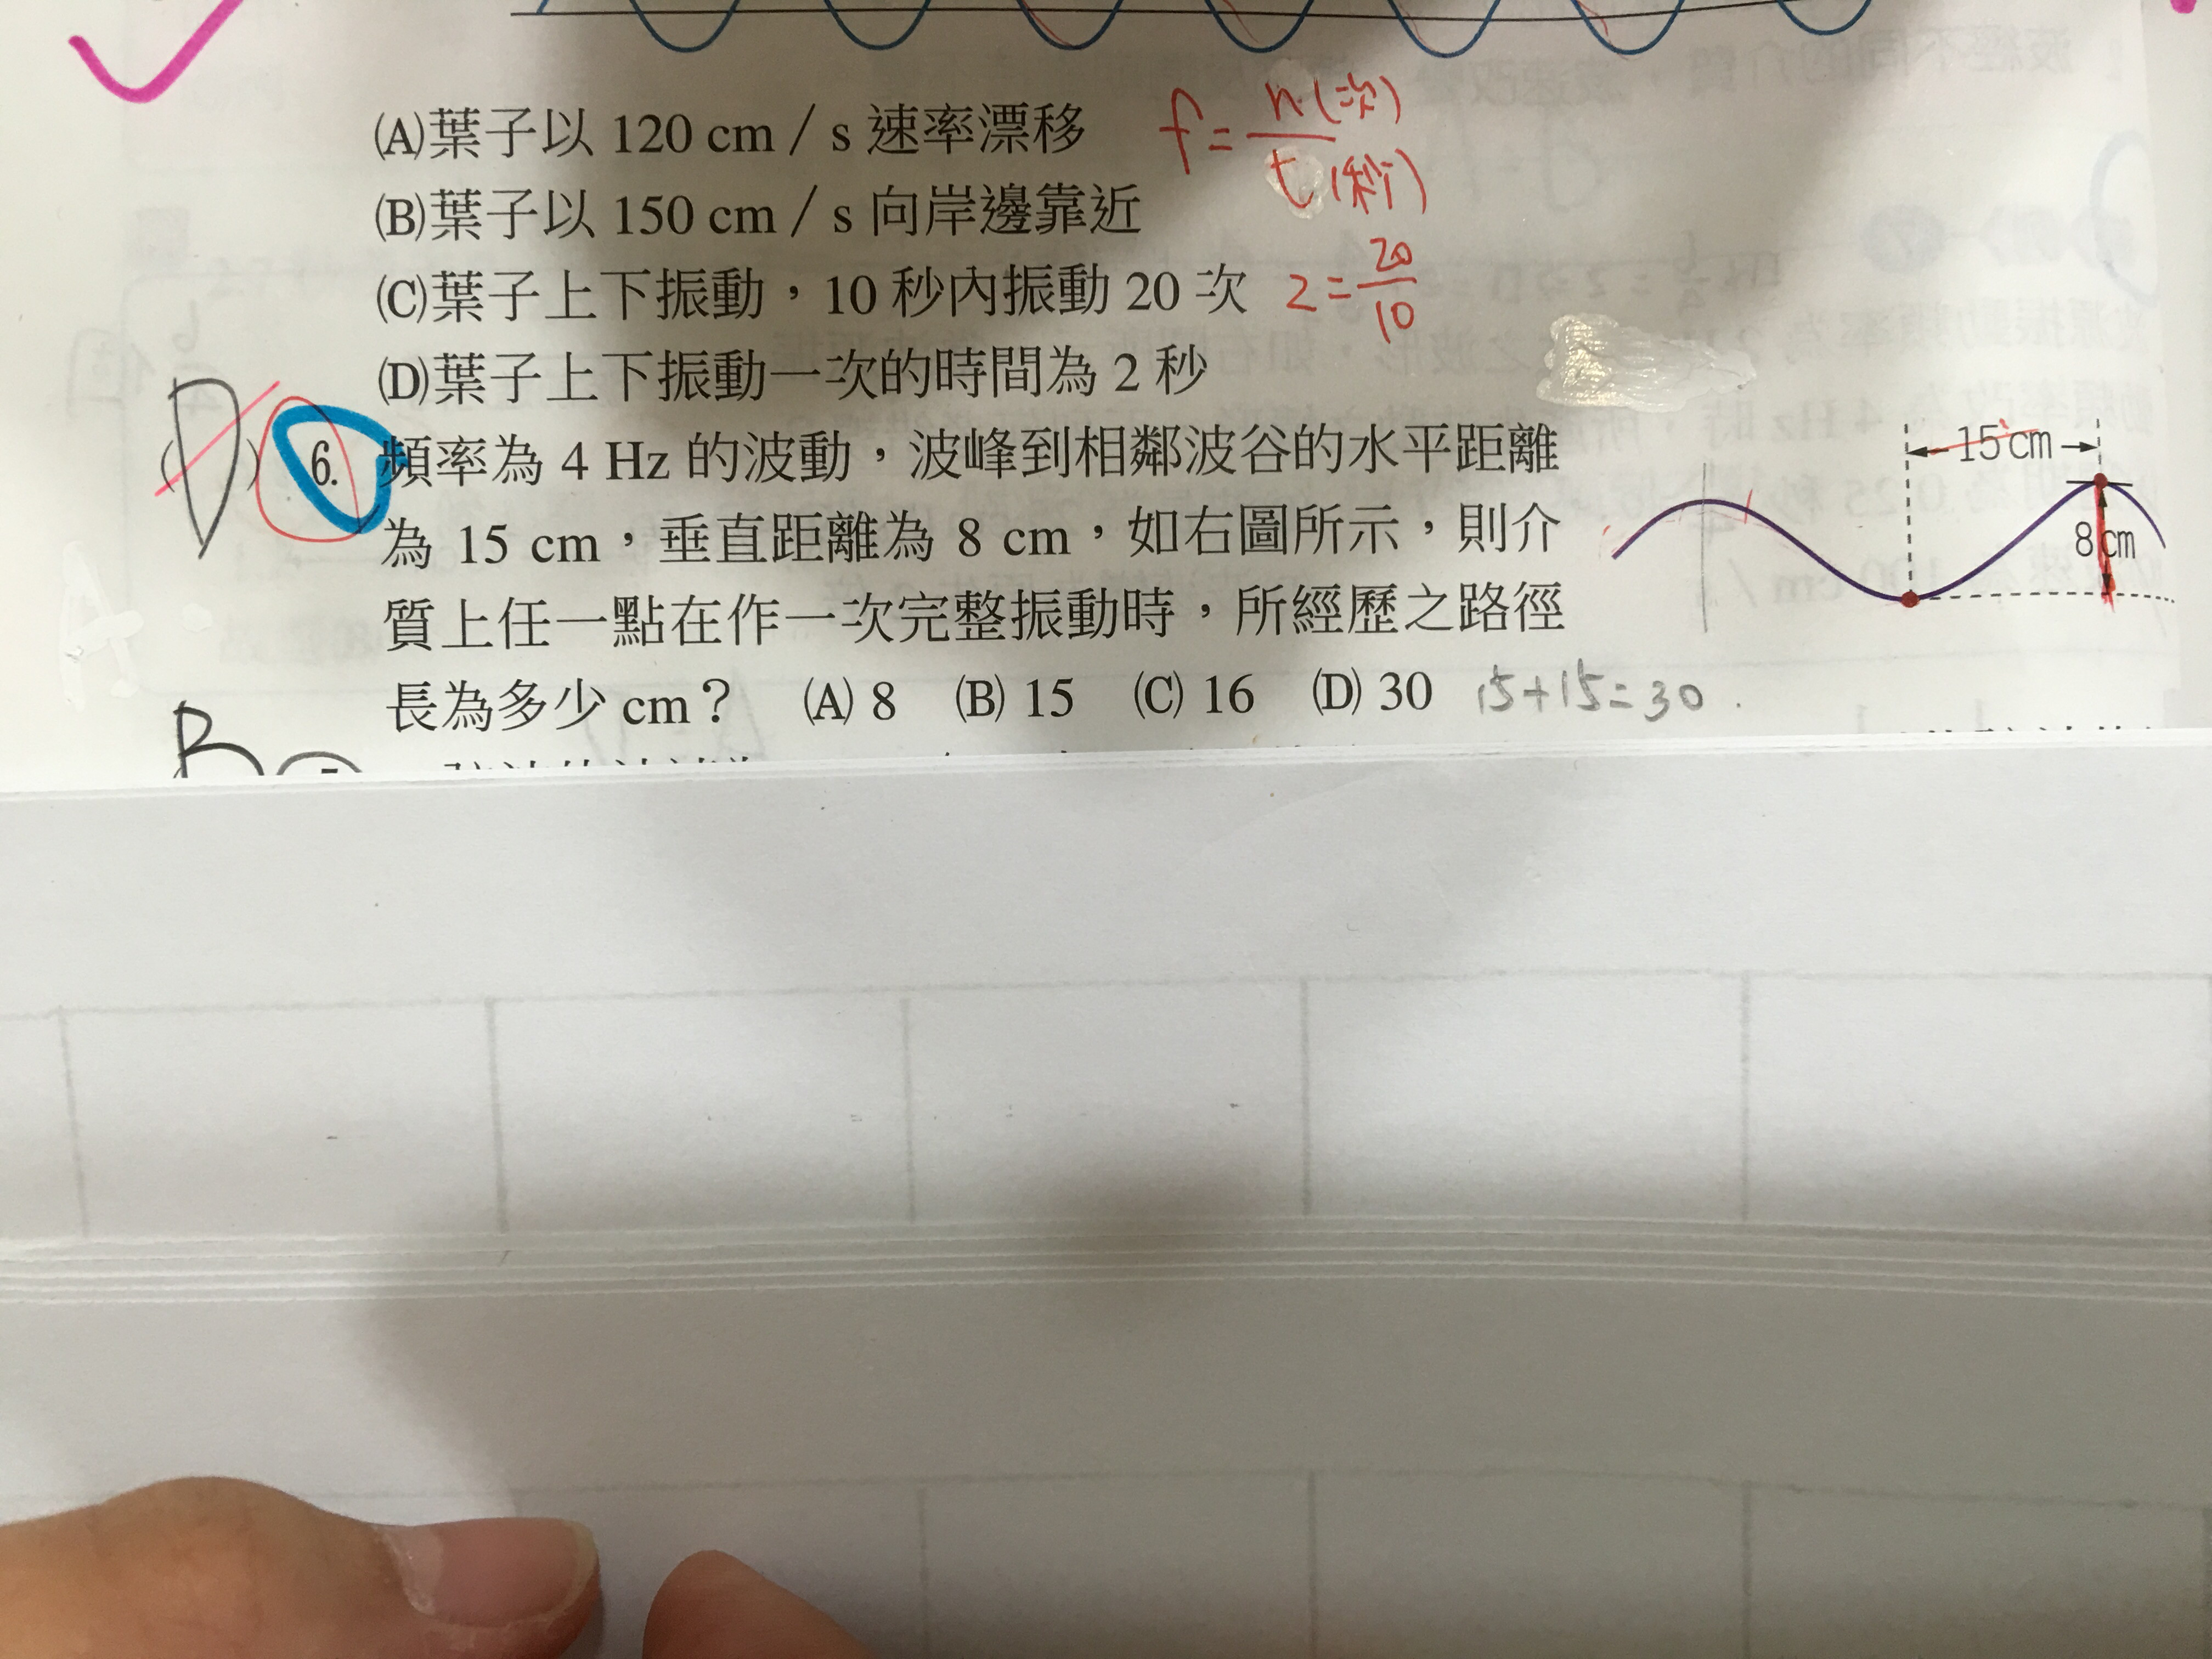 (A)葉子以 120 cm / s 速率漂移
f = n(次) / t(秒)
(B)葉子以 150 cm / s 向岸邊靠近
(C)葉子上下振動，10 秒內振動 20 次
2 = 20 / 10
(D)葉子上下振動一次的時間為 2 秒
(D) 6. 頻率為 4 Hz 的波動，波峰到相鄰波谷的水平距離
為 15 cm，垂直距離為 8 cm，如右圖所示，則介
質上任一點在作一次完整振動時，所經歷之路徑
長為多少 cm？ (A) 8 (B) 15 (C) 16 (D) 30 15+15=30
15 cm
8 cm
B